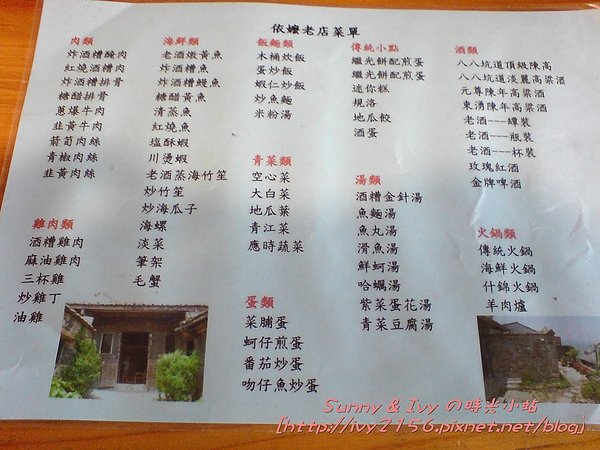 依嬤老店菜單
肉類
炸酒糟醃肉
紅燒酒糟肉
炸酒糟排骨
糖醋排骨
蔥爆牛肉
韭黃牛肉
箭筍肉絲
青椒肉絲
韭黃肉絲
雞肉類
酒糟雞肉
麻油雞肉
三杯雞
炒雞丁
油雞
海鮮類
老酒燉黃魚
炸酒糟魚
炸酒糟鰻魚
糖醋黃魚
清蒸魚
紅燒魚
塩酥蝦
川燙蝦
老酒蒸海竹笙
炒竹笙
炒海瓜子
海螺
淡菜
筆架
毛蟹
飯麵類
木桶炊飯
蛋炒飯
蝦仁炒飯
炒魚麵
米粉湯
青菜類
空心菜
大白菜
地瓜葉
青江菜
應時蔬菜
蛋類
菜脯蛋
蚵仔煎蛋
番茄炒蛋
吻仔魚炒蛋
傳統小點
繼光餅配煎蛋
繼光餅配肉
迷你糕
規洛
地瓜餃
酒蛋
湯類
酒糟金針湯
魚麵湯
魚丸湯
滑魚湯
鮮蚵湯
哈蠣湯
紫菜蛋花湯
青菜豆腐湯
酒類
八八坑道頂級陳高
八八坑道淡麗高梁酒
元尊陳年高梁酒
東湧陳年高梁酒
老酒---罈裝
老酒---瓶裝
老酒---杯裝
玫瑰紅酒
金牌啤酒
火鍋類
傳統火鍋
海鮮火鍋
什錦火鍋
羊肉爐
Sunny & Ivy の時光小站
[http://ivy2156.pixnet.net/blog]